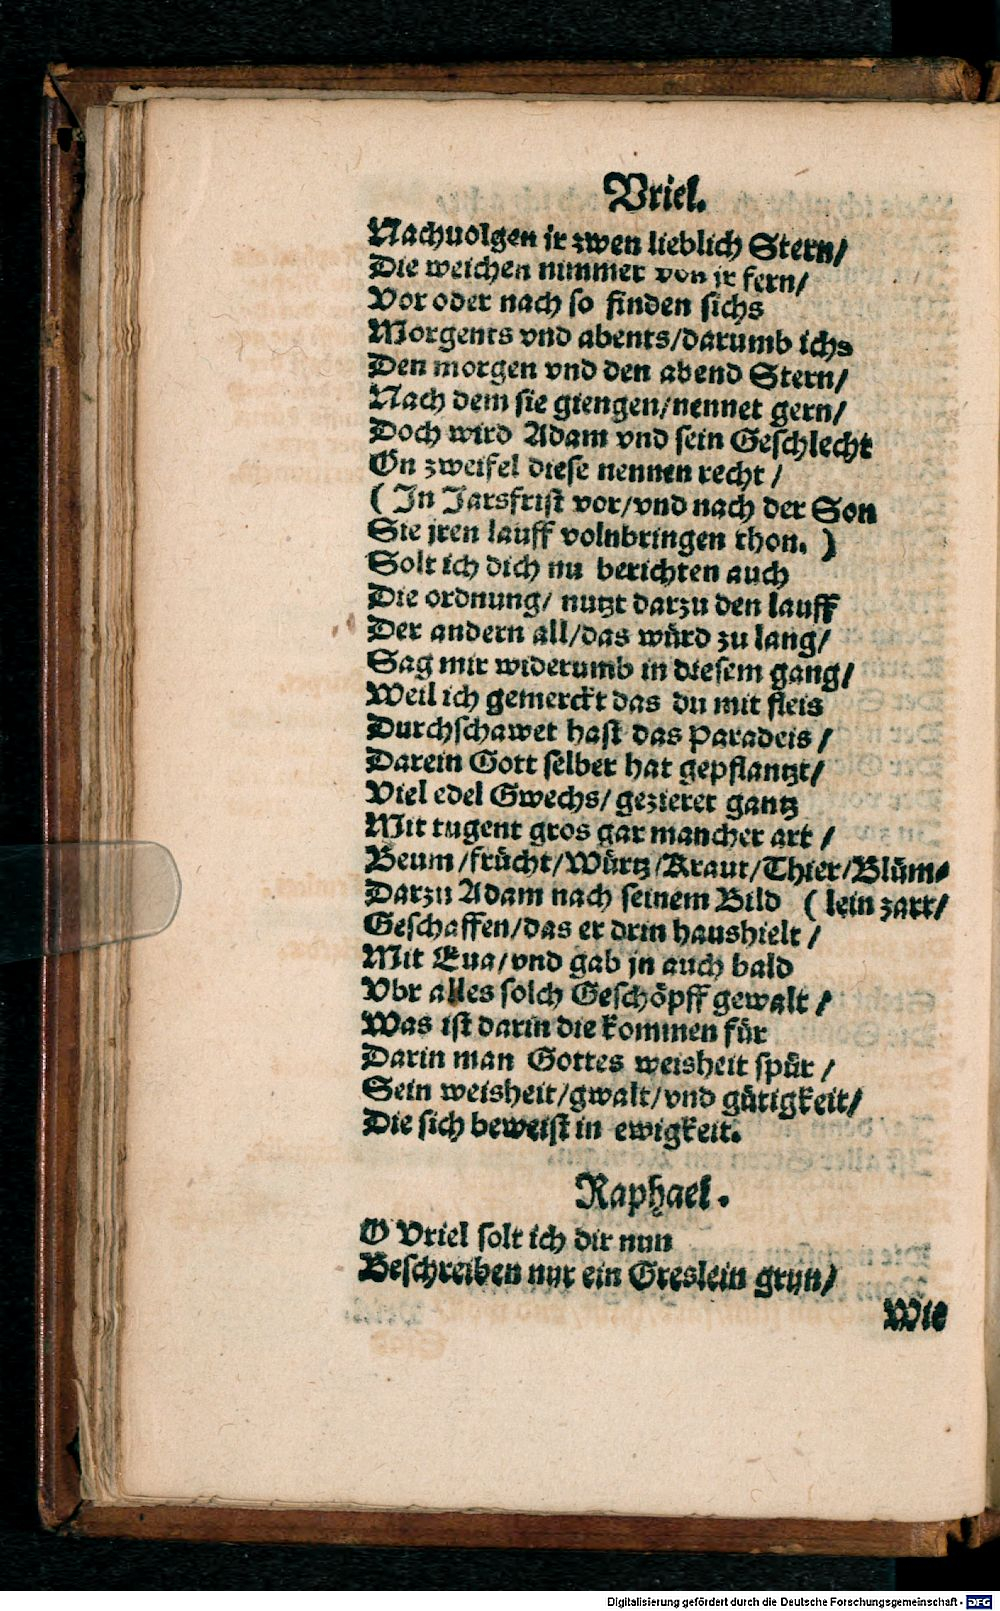 Vriel.
Nachuolgen jr zwen lieblich Stern/
Die weichen nimmer von jr fern/
Vor oder nach so finden sichs
Morgents vnd abents/darumb ichs
Den morgen vnd den abend Stern/
Nach dem sie giengen/nennet gern/
Doch wird Adam vnd sein Geschlecht
On zweifel diese nennen recht/
(In Jarsfrist vor/vnd nach der Son
Sie jren lauff volnbringen thon.)
Solt ich dich nu berichten auch
Die ordnung/ nutzt darzu den lauff
Der andern all/das würd zu lang/
Sag mir widerumb in diesem gang/
Weil ich gemerckt das du mit fleis
Durchschawet hast das Paradeis/
Darein Gott selber hat gepflantzt/
Viel edel Gwechs/ gezieret gantz
Mit tugent gros gar mancher art/
Beum/frücht/Würtz/Kraut/Thier/Blüm-
Darzu Adam nach seinem Bild (lein zart/
Geschaffen/das er drin haushielt/
Mit Eua/vnd gab jn auch bald
Vbr alles solch Geschöpff gewalt/
Was ist darin die kommen für
Darin man Gottes weisheit spür/
Sein weisheit/gwalt/vnd gütigkeit/
Die sich beweist in ewigkeit.
Raphael.
O Vriel solt ich dir nun
Beschreiben nur ein Greslein grun/
Wie
Digitalisierung gefördert durch die Deutsche Forschungsgemeinschaft - DFG